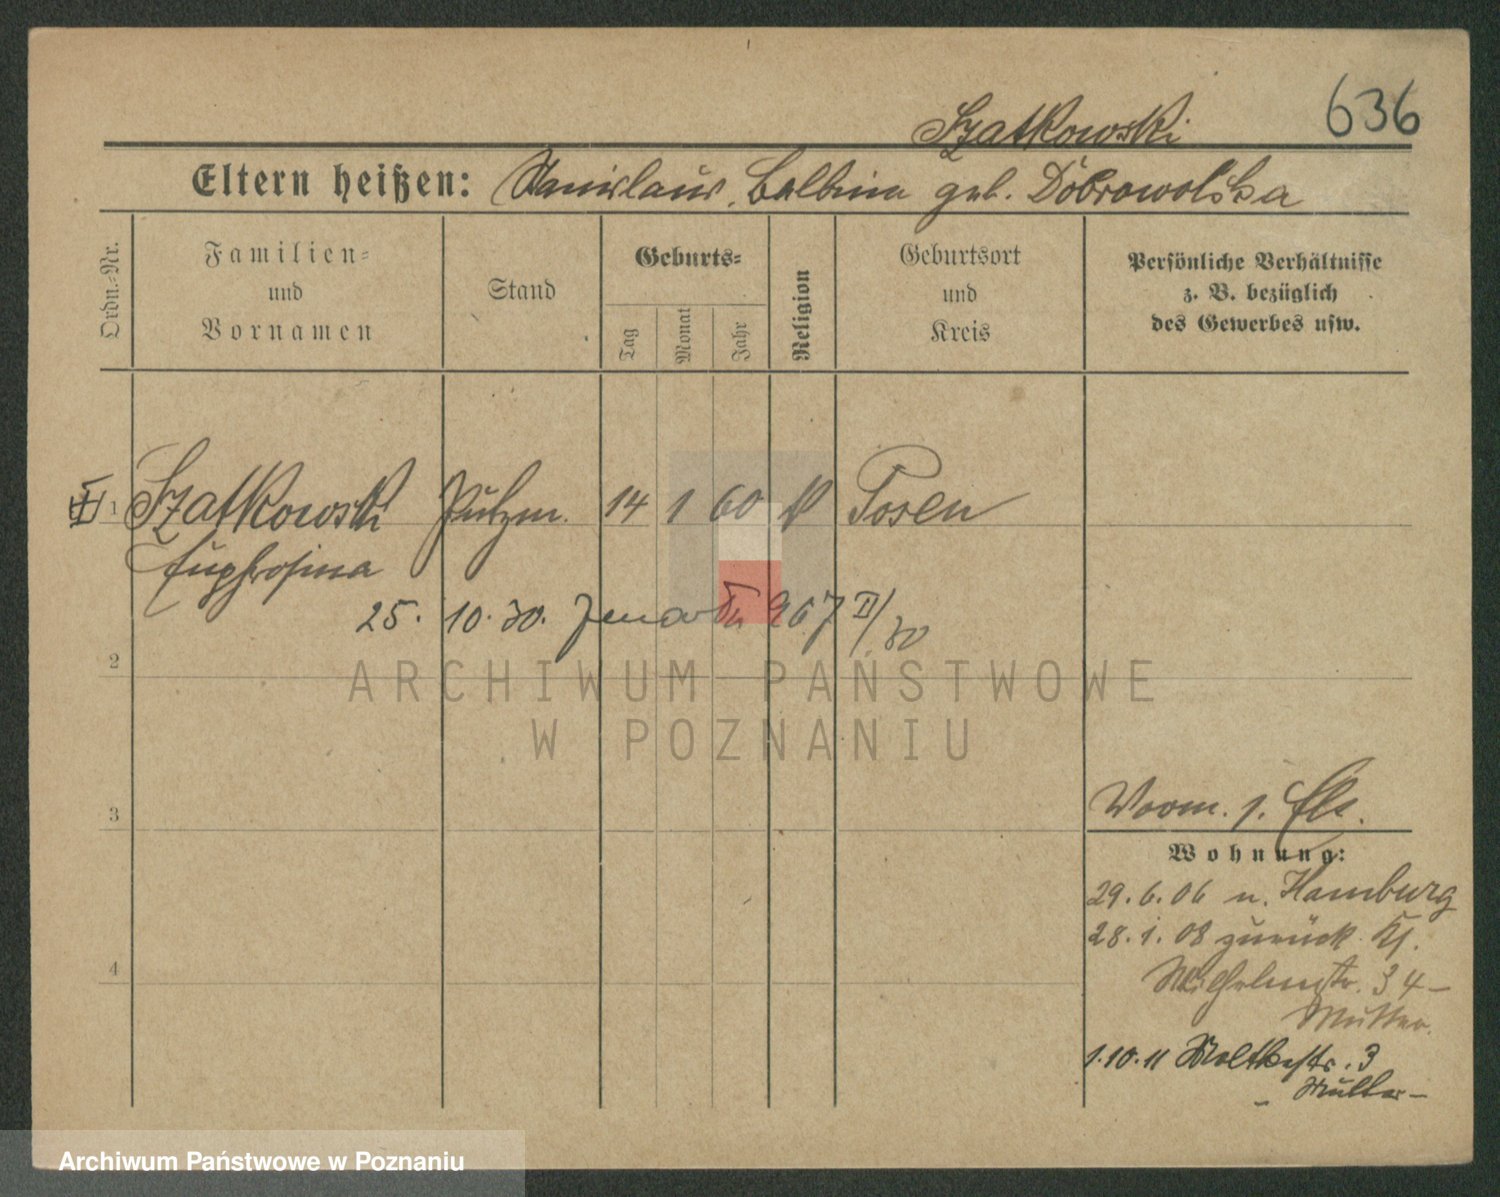 636
Szatkowski
Eltern heißen: Stanislaus, Balbina geb. Dobrowolska
Ordn.-Nr.
Familien-
und
Vornamen
Stand
Geburts-
Tag
Monat
Jahr
Religion
Geburtsort
und
Kreis
Persönliche Verhältnisse
z. B. bezüglich
des Gewerbes usw.
1 Szatkowski Putzm. 14 1 60 k Posen
Euphrosina
25. 10. 30. 967 II/30
2
ARCHIWUM PAŃSTWOWE
W POZNANIU
3
Worm. 1.
Wohnung:
29. 6. 06 n. Hamburg
28. 1. 08 zurück
4
Wilhelmstr. 34 –
Mutter.
1. 10. 11 Moltkestr. 3
– Mutter –
Archiwum Państwowe w Poznaniu